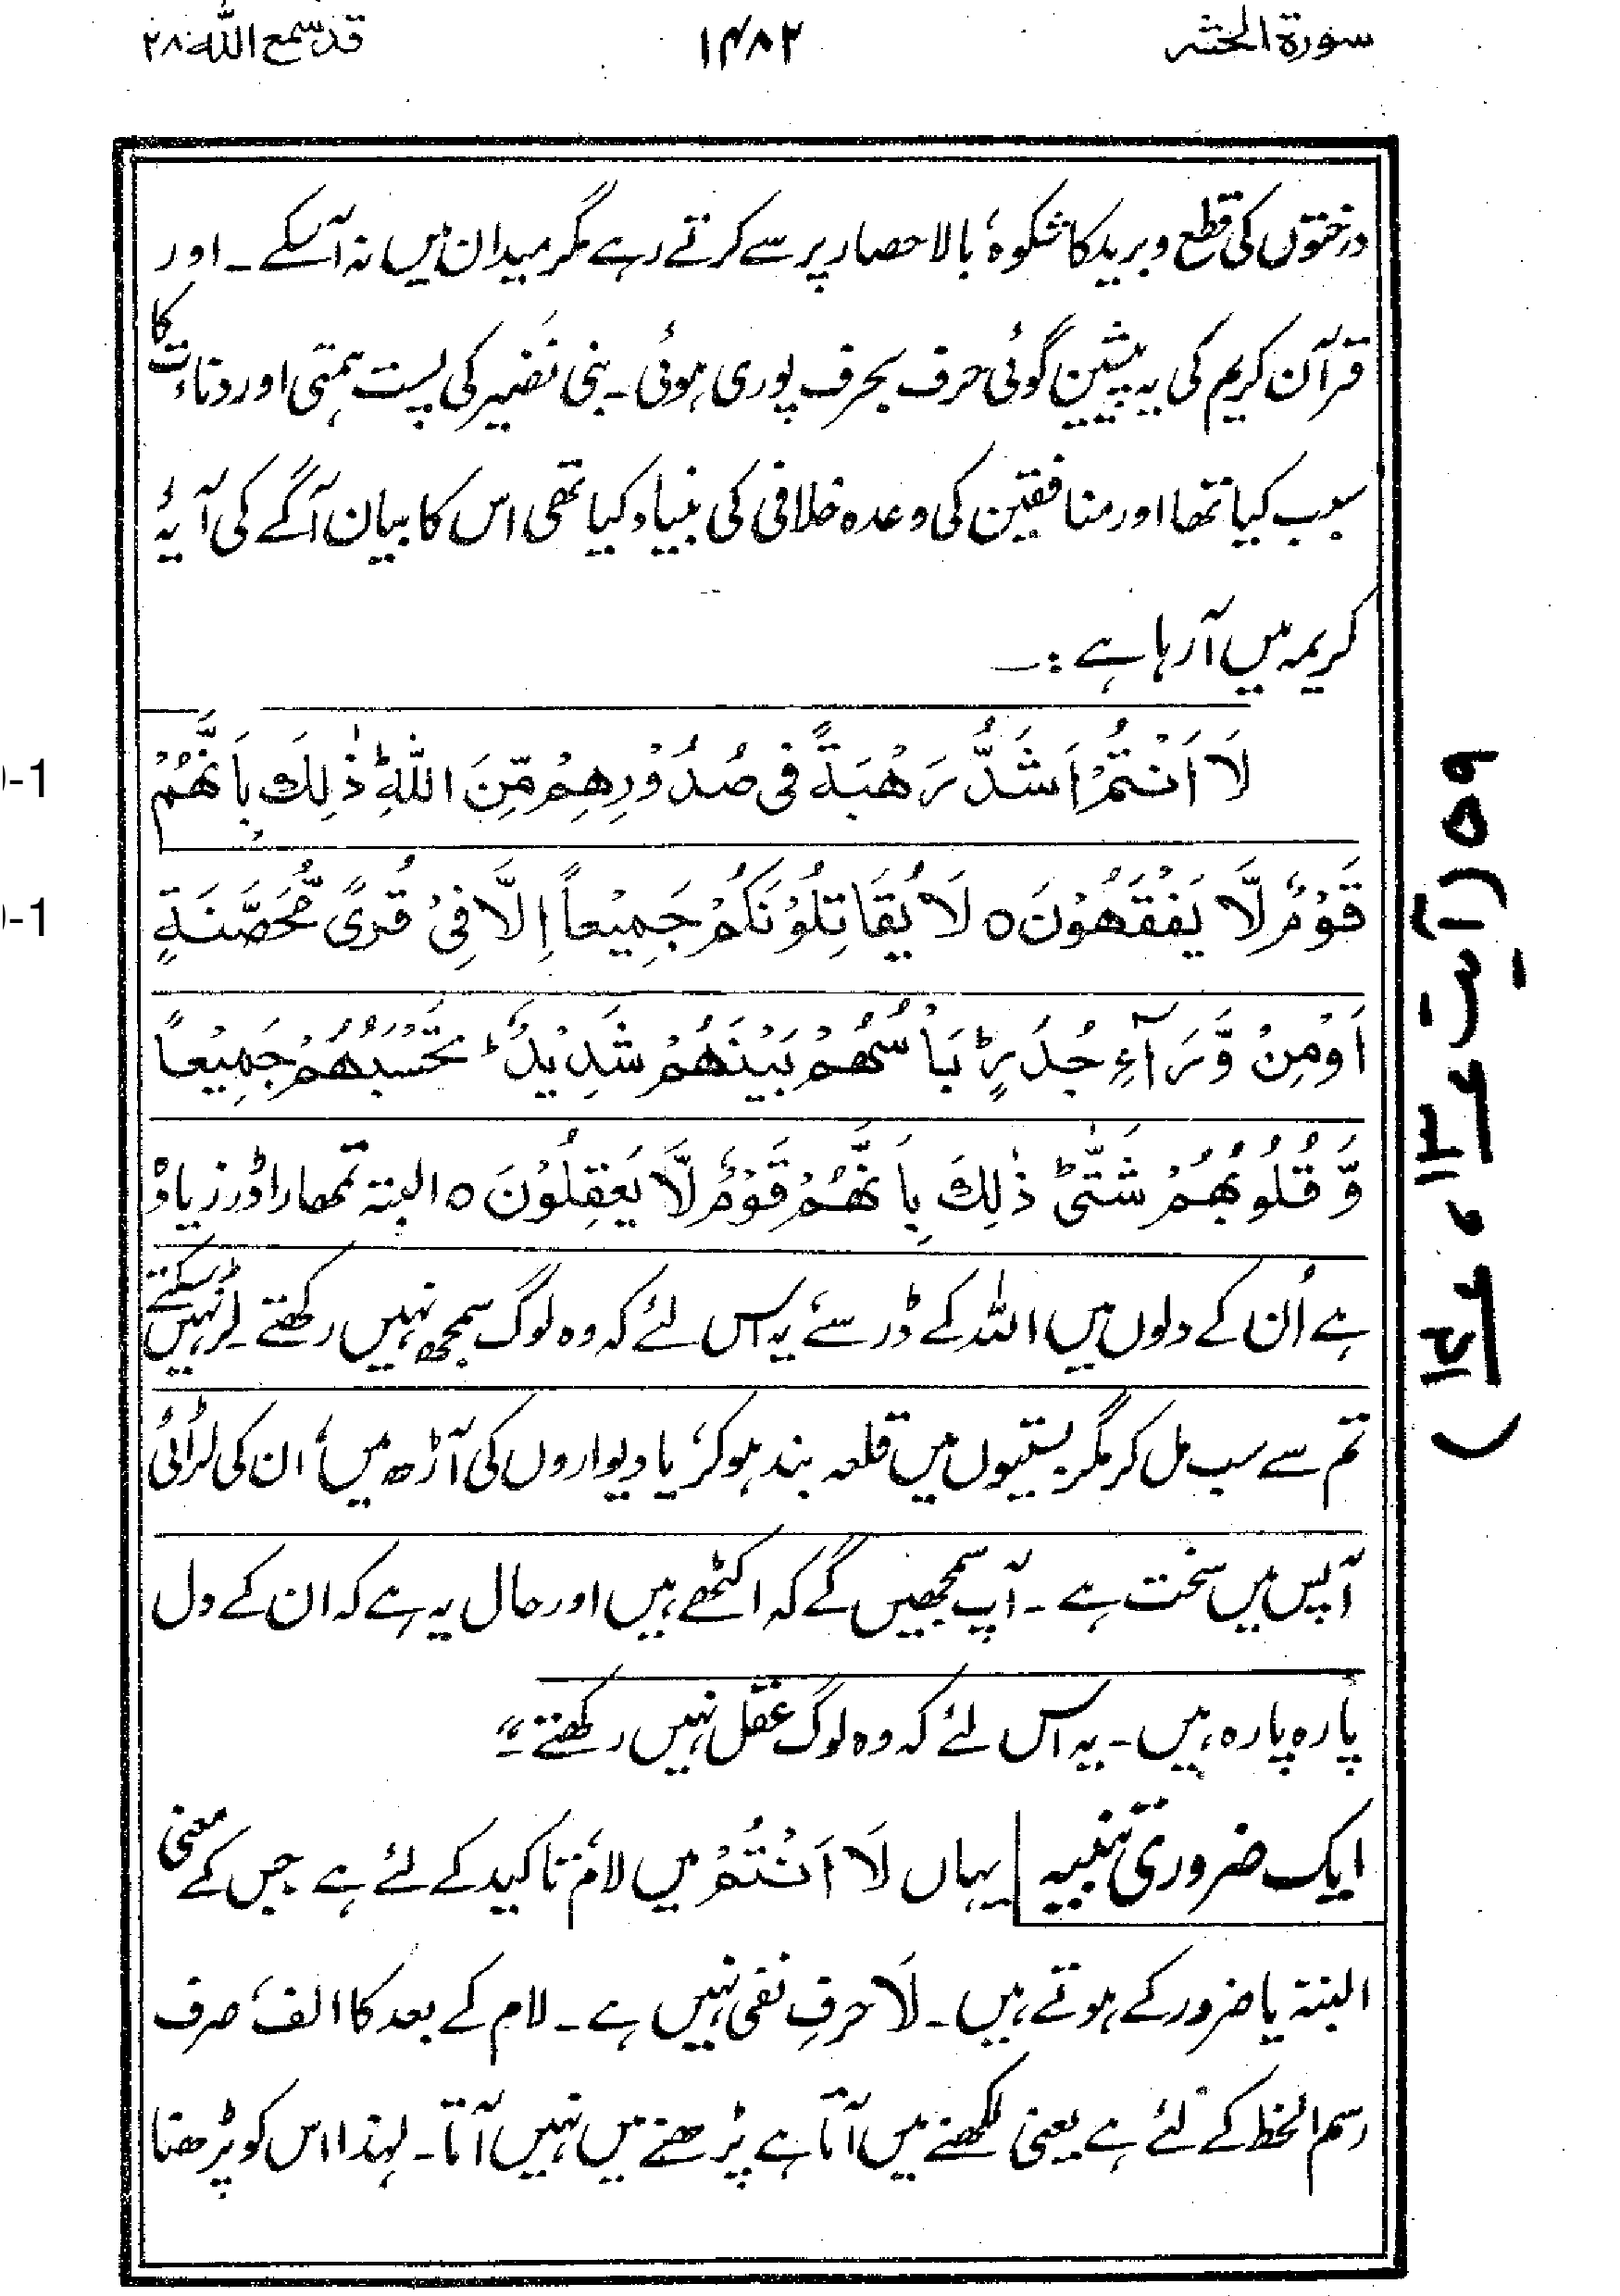 سورة الحشر ۱۴۸۲ قد سمع اللہ ۲۸
درختوں کی قطع و برید کا شکوہ، بالا حصار پر سے کرتے رہے مگر میدان میں نہ آسکے ۔ اور
قرآن کریم کی یہ پیشین گوئی حرف بحرف پوری ہوئی ۔ بنی نضیر کی پست ہمتی اور دناءت کا
سبب کیا تھا اور منافقین کی وعدہ خلافی کی بنیاد کیا تھی اس کا بیان آگے کی آیۂ
کریمہ میں آرہا ہے :۔
لَا اَنْتُمْ اَشَدُّ رَهْبَةً فِی صُدُوْرِهِمْ مِّنَ اللّٰهِ ؕ ذٰلِكَ بِاَنَّهُمْ
قَوْمٌ لَّا یَفْقَهُوْنَ ٥ لَا یُقَاتِلُوْنَكُمْ جَمِیْعاً اِلَّا فِیْ قُرًی مُّحَصَّنَةٍ
اَوْ مِنْ وَّرَآءِ جُدُرٍ ؕ بَاْسُهُمْ بَیْنَهُمْ شَدِیْدٌ ؕ تَحْسَبُهُمْ جَمِیْعاً
وَّ قُلُوْبُهُمْ شَتّٰی ؕ ذٰلِكَ بِاَنَّهُمْ قَوْمٌ لَّا یَعْقِلُوْنَ ٥ البتہ تمھارا ڈر زیادہ
ہے اُن کے دلوں میں اللہ کے ڈر سے، یہ اس لئے کہ وہ لوگ سمجھ نہیں رکھتے لڑ نہیں سکتے
تم سے سب مل کر مگر بستیوں میں قلعہ بند ہو کر، یا دیواروں کی آڑھ میں، ان کی لڑائی
آپس میں سخت ہے ۔ آپ سمجھیں گے کہ اکٹھے ہیں اور حال یہ ہے کہ ان کے دل
پارہ پارہ ہیں ۔ یہ اس لئے کہ وہ لوگ عقل نہیں رکھتے ۔"
ایک ضروری تنبیہ یہاں لَا اَنْتُمْ میں لام، تاکید کے لئے ہے جس کے معنی
البتہ یا ضرور کے ہوتے ہیں ۔ لَا حرفِ نفی نہیں ہے ۔ لام کے بعد کا الف، صرف
رسم الخط کے لئے ہے یعنی لکھنے میں آتا ہے پڑھنے میں نہیں آتا ۔ لہذا اس کو پڑھنا
۵۹ (آیت ۱۳ ، ۱۴)